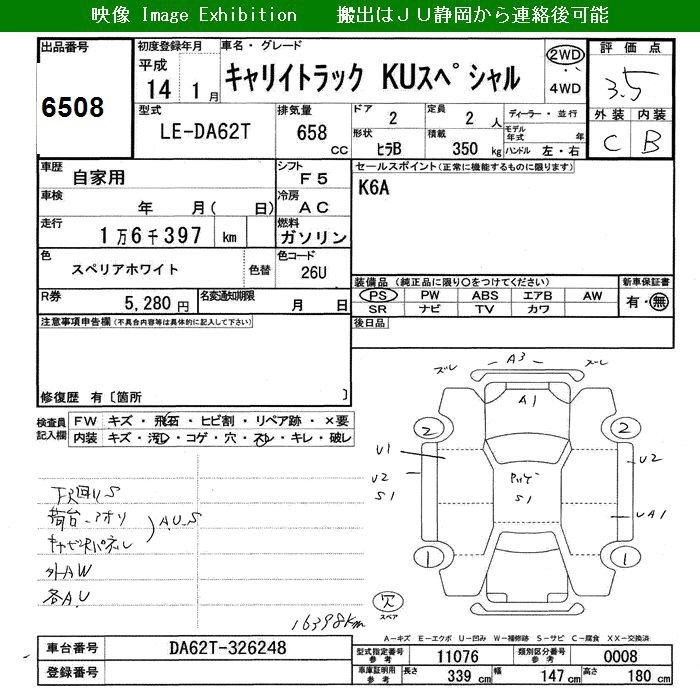 映像 Image Exhibition 搬出はＪＵ静岡から連絡後可能
出品番号
6508
初度登録年月
平成
14 1月
車名・グレード
キャリイトラック KUスペシャル
2WD
4WD
評価点
3.5
外装 内装
C B
型式
LE-DA62T
排気量
658 CC
ドア
2
定員
2 人
形状
ヒラB
積載
350 kg
ディーラー・並行
モデル年式 年
ハンドル 左・右
車歴
自家用
シフト
F5
車検
年 月( 日)
冷房
AC
走行
1万6千397 km
燃料
ガソリン
色
スペリアホワイト
色替
色コード
26U
R券
5,280 円
名変通知期限
月 日
セールスポイント(正常に機能するものに限ります)
K6A
装備品 (純正品に限り○をつけてください)
PS PW ABS エアB AW
SR ナビ TV カワ
新車保証書
有・無
後日品
注意事項申告欄(不具合内容等は具体的に記入して下さい)
修復歴 有〔箇所 〕
検査員記入欄
FW キズ・飛石・ヒビ割・リペア跡・×要
内装 キズ・汚レ・コゲ・穴・スレ・キレ・破レ
下回りS
荷台-アオリ
A.U.S
外AW
各A.U
16398km
ズレ A3 ズレ
A1
2 2
U1
U2
S1
S1
U2
UA1
1 1
欠
スペア
A-キズ E-エクボ U-凹み W-補修跡 S-サビ C-腐食 XX-交換済
車台番号
DA62T-326248
登録番号
型式指定番号 参考
11076
類別区分番号 参考
0008
車庫証明用 参考
長さ 339 cm 幅 147 cm 高さ 180 cm